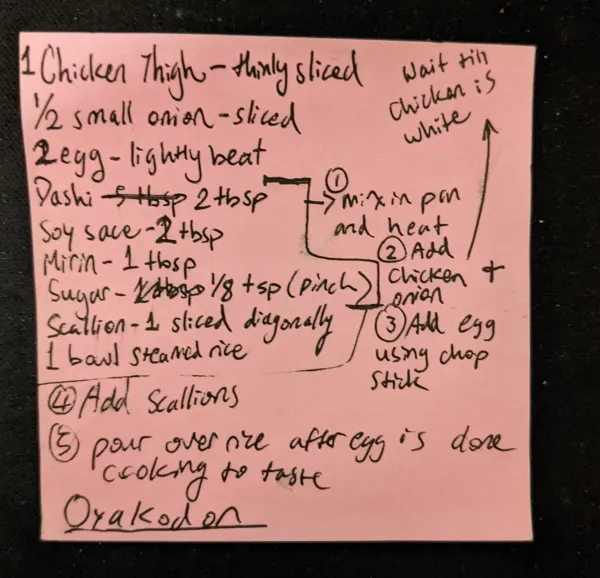 1 Chicken Thigh - thinly sliced
1/2 small onion - sliced
2 egg - lightly beat
Dashi 5 tbsp 2 tbsp
Soy sace - 2 tbsp
Mirin - 1 tbsp
Sugar - 1/8 tsp (pinch)
Scallion - 1 sliced diagonally
1 bowl steamed rice
① mix in pan
and heat
② Add
chicken +
onion
Wait till
chicken is
white
③ Add egg
using chop
stick
④ Add Scallions
⑤ pour over rice after egg is done
cooking to taste
Oyakodon